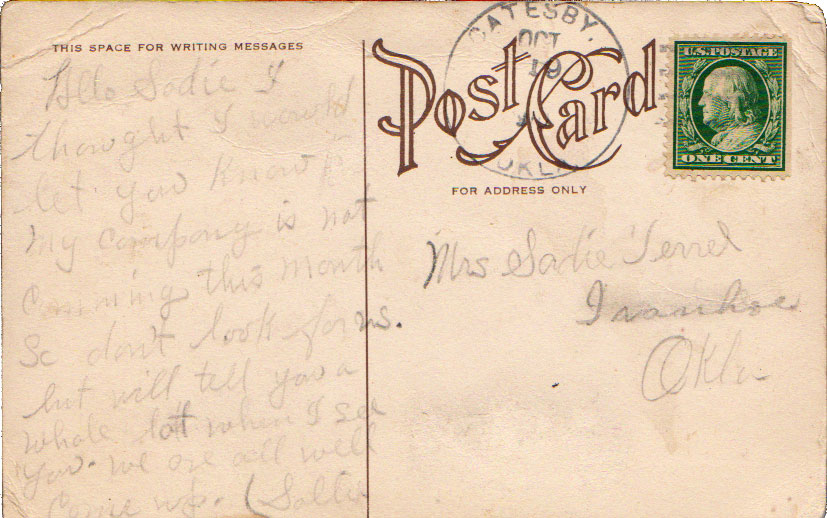 THIS SPACE FOR WRITING MESSAGES
Hello Sadie I
thought I would
let you know
my company is not
comming this month
So don't look for us.
but will tell you a
whole lott when I see
you. we are all well
Come up. (Sallie
Post Card
FOR ADDRESS ONLY
GATESBY,
OCT
19
OKLA.
U.S. POSTAGE
ONE CENT
Mrs Sadie Terrel
Ivanhoe
Okla